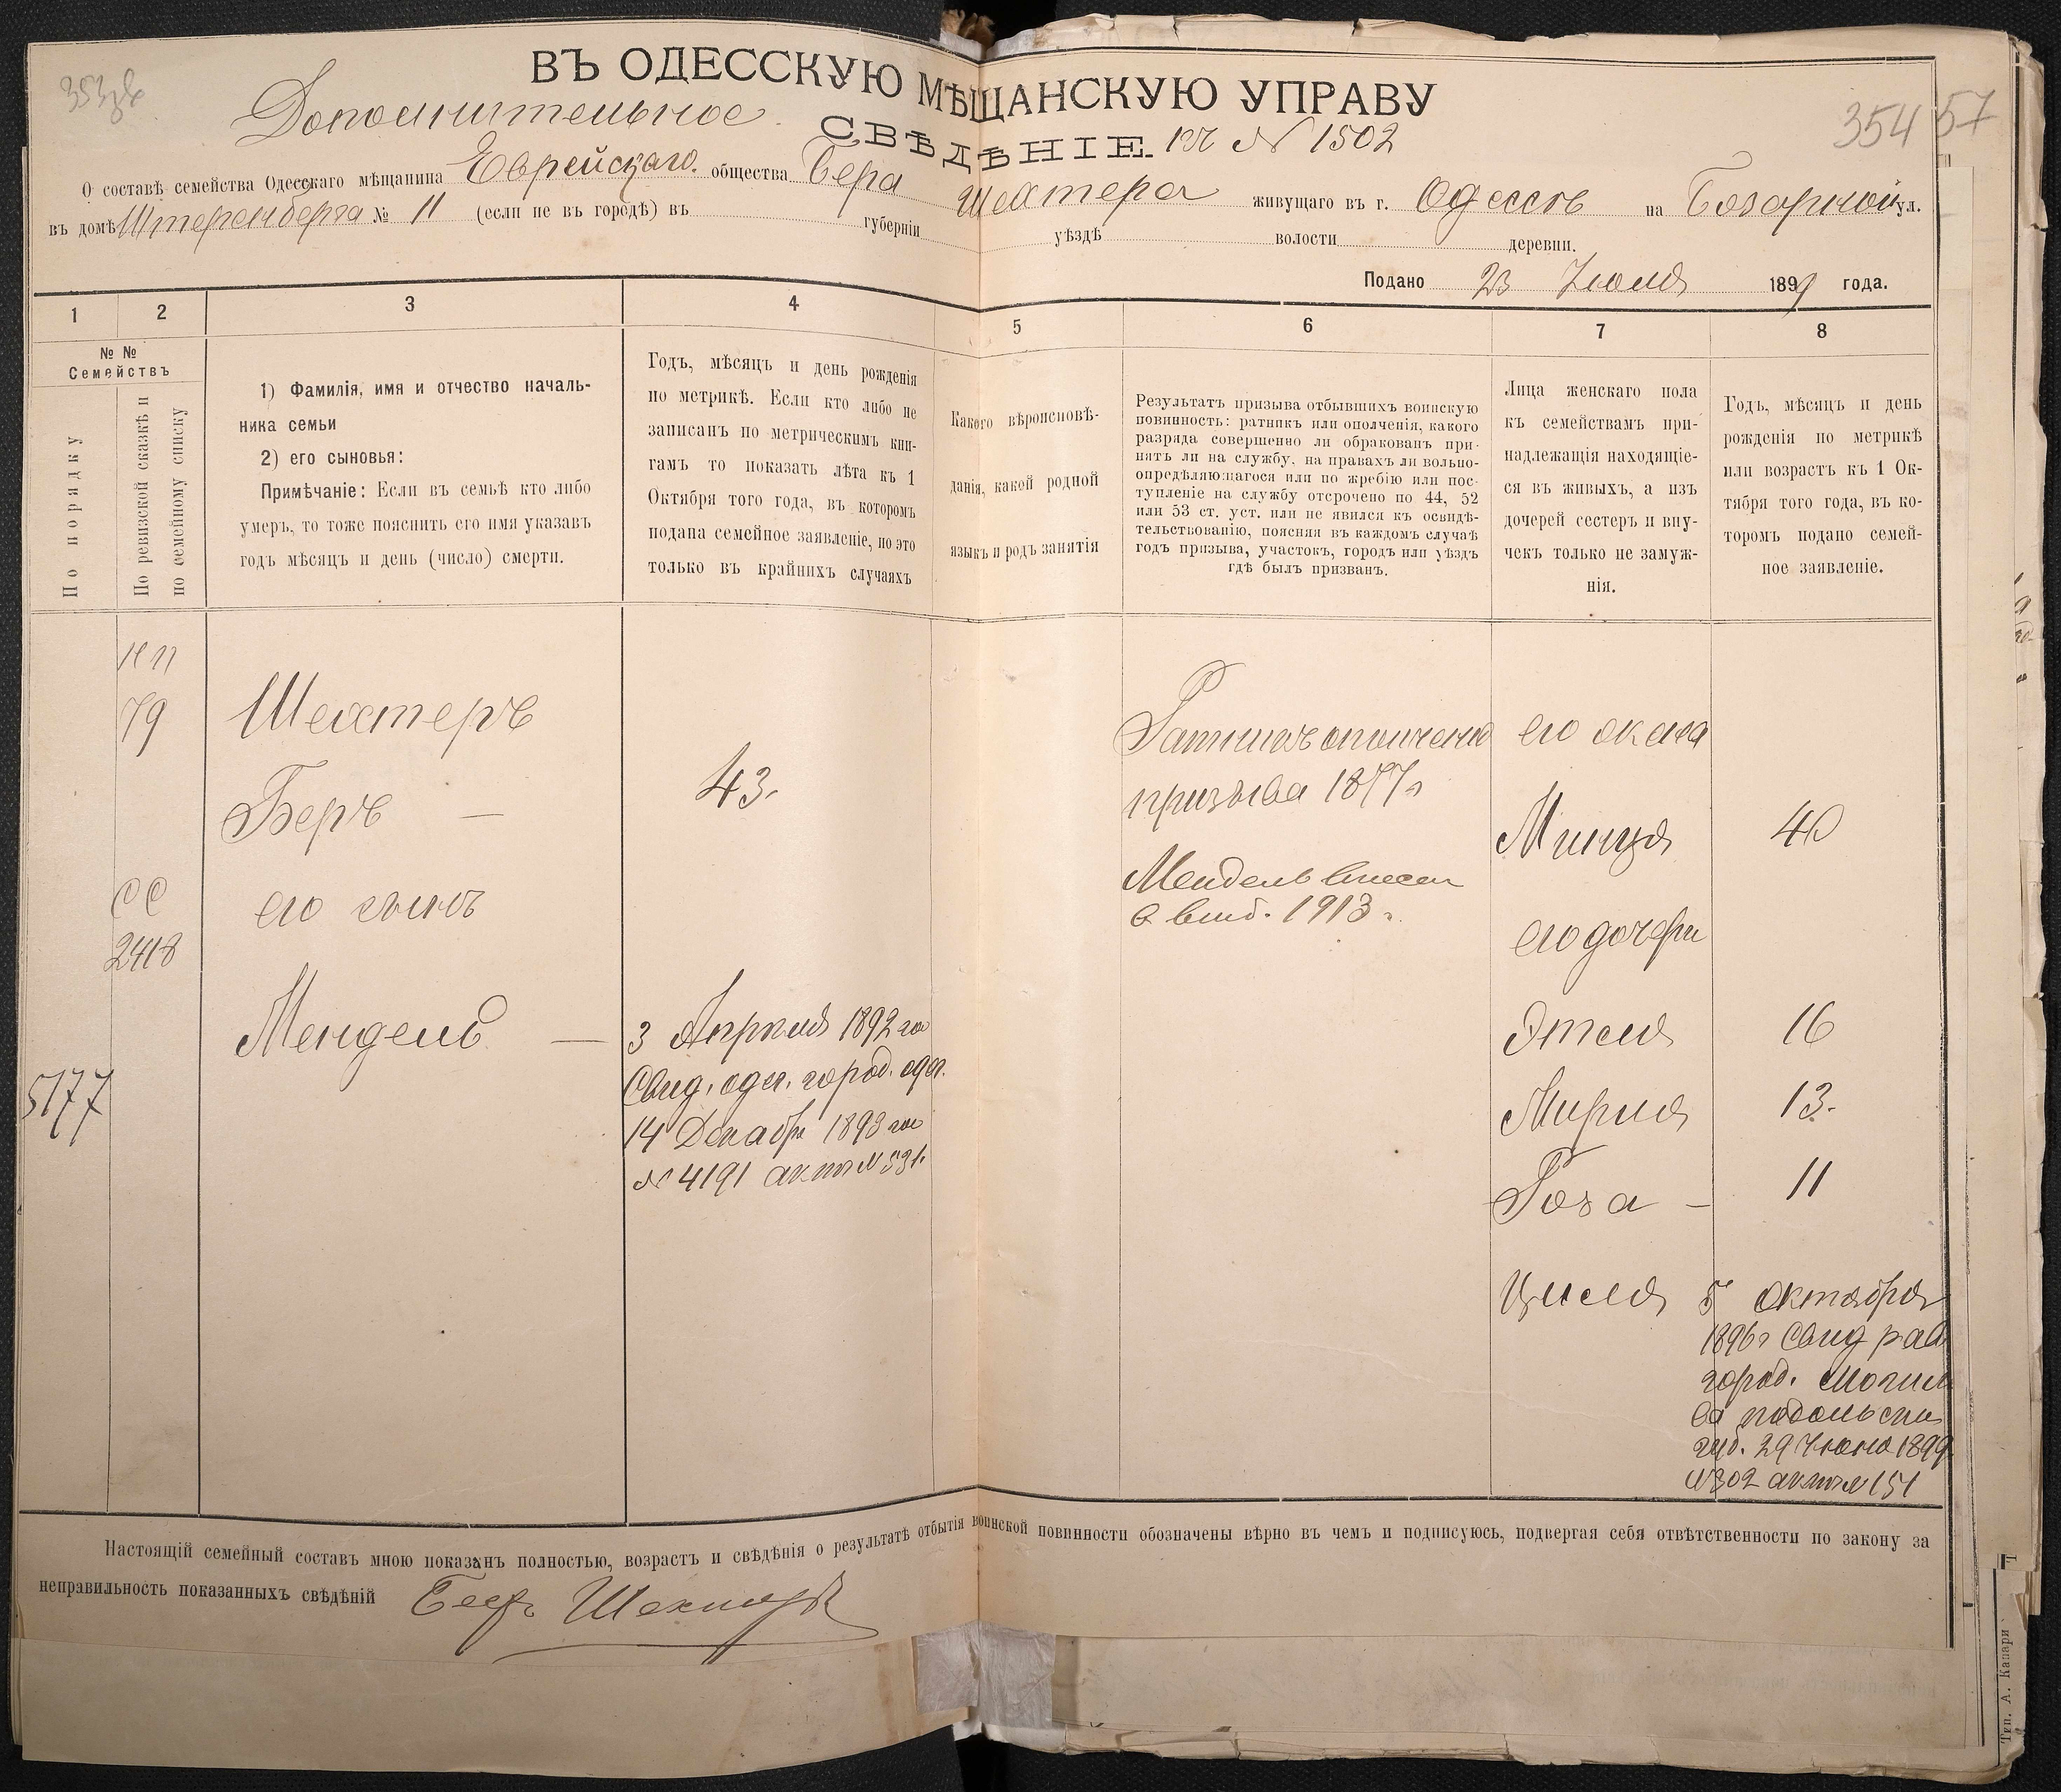 353 об
ВЪ ОДЕССКУЮ МѢЩАНСКУЮ УПРАВУ
354
57
Дополнительное
СВѢДѢНІЕ къ № 1502
О составѣ семейства Одесскаго мѣщанина Еврейскаго общества Бера Шехтера живущаго въ г. Одессѣ на Базарной ул.
въ домѣ Штеренберга № 11 (если не въ городѣ) въ губерніи уѣздѣ волости деревни.
Подано 23 Іюля 1899 года.
1 2 3 4 5 6 7 8
№ №
Семействъ
По порядку
По ревизской сказкѣ и
по семейному списку
1) Фамилія, имя и отчество началь-
ника семьи
2) его сыновья:
Примѣчаніе: Если въ семьѣ кто либо
умеръ, то тоже пояснить его имя указавъ
годъ мѣсяцъ и день (число) смерти.
Годъ, мѣсяцъ и день рожденія
по метрикѣ. Если кто либо не
записанъ по метрическимъ кни-
гамъ то показать лѣта къ 1
Октября того года, въ которомъ
подана семейное заявленіе, но это
только въ крайнихъ случаяхъ
Какого вѣроисповѣ-
данія, какой родной
языкъ и родъ занятія
Результатъ призыва отбывшихъ воинскую
повинность: ратникъ или ополченія, какого
разряда совершенно ли обракованъ при-
нятъ ли на службу, на правахъ ли вольно-
опредѣляющагося или по жребію или пос-
тупленіе на службу отсрочено по 44, 52
или 53 ст. уст. или не явился къ освидѣ-
тельствованію, поясняя въ каждомъ случаѣ
годъ призыва, участокъ, городъ или уѣздъ
гдѣ былъ призванъ.
Лица женскаго пола
къ семействамъ при-
надлежащія находящіе-
ся въ живыхъ, а изъ
дочерей сестеръ и вну-
чекъ только не замуж-
нія.
Годъ, мѣсяцъ и день
рожденія по метрикѣ
или возрастъ къ 1 Ок-
тября того года, въ ко-
торомъ подано семей-
ное заявленіе.
79
Шехтеръ
Беръ —
43.
Ратникъ ополченія
призыва 1877 г
Мендель внесен
в 1913 г.
его жена
Минця 40
СС
2418
его сынъ
Мендель —
5177
3 Апрѣля 1892 го
Свид. одес. город. одес.
14 Декабр 1893 го
№ 4191 актъ № 531.
его дочери
Этля 16
Мирия 13.
Роза — 11
Циля 5 Октября
1896 г Свид рав
город. Могил
ва подольск
губ. 29 Іюня 1899
№ 302 актъ № 151
Настоящій семейный составъ мною показанъ полностью, возрастъ и свѣдѣнія о результатѣ отбытія воинской повинности обозначены вѣрно въ чемъ и подписуюсь, подвергая себя отвѣтственности по закону за
неправильность показанныхъ свѣдѣній Беръ Шехтеръ
Тип. А. Капари